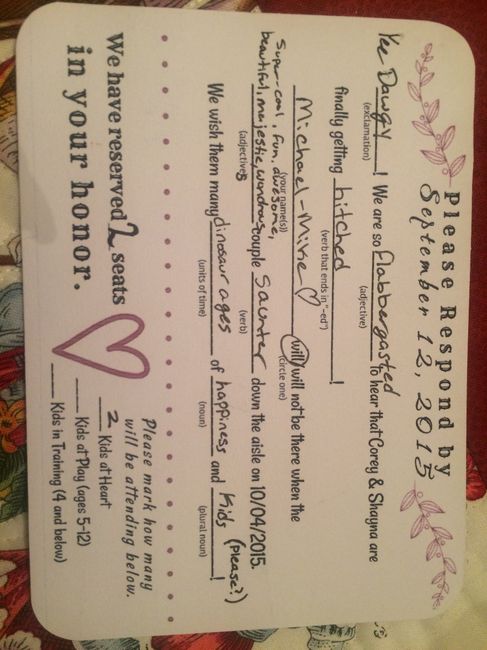 Please Respond by
September 12, 2015
Yee Dawgy! We are so flabbergasted to hear that Corey & Shayna are
(exclamation) (adjective)
finally getting hitched!
(verb that ends in "-ed")
Michael-Mike ♡ will/will not be there when the
(your name(s)) (circle one)
Super-cool, fun, awesome,
beautiful, majestic, wondrous couple Saunter down the aisle on 10/04/2015.
(adjectives) (verb)
We wish them many dinosaur ages of happiness and Kids (please?)!
(units of time) (noun) (plural noun)
We have reserved 2 seats
in your honor.
Please mark how many
will be attending below.
2 Kids at Heart
___ Kids at Play (ages 5-12)
___ Kids in Training (4 and below)